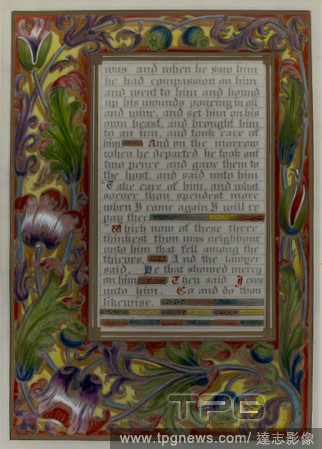 was and when he saw him
he had compassion on him
and went to him and bound
up his wounds pouring in oil
and wine, and set him on his
own beast, and brought him
to an inn, and took care of
him And on the morrow
when he departed he took out
two pence and gave them to
the host, and said unto him
Take care of him, and what
soever thou spendest more
when I come again I will re
pay thee
Which now of these three
thinkest thou was neighbour
unto him that fell among the
thieves. And the lawyer
said, He that showed mercy
on him Then said Jesus
unto him, Go and do thou
likewise.
TPG
www.tpgnews.com/ 達志影像